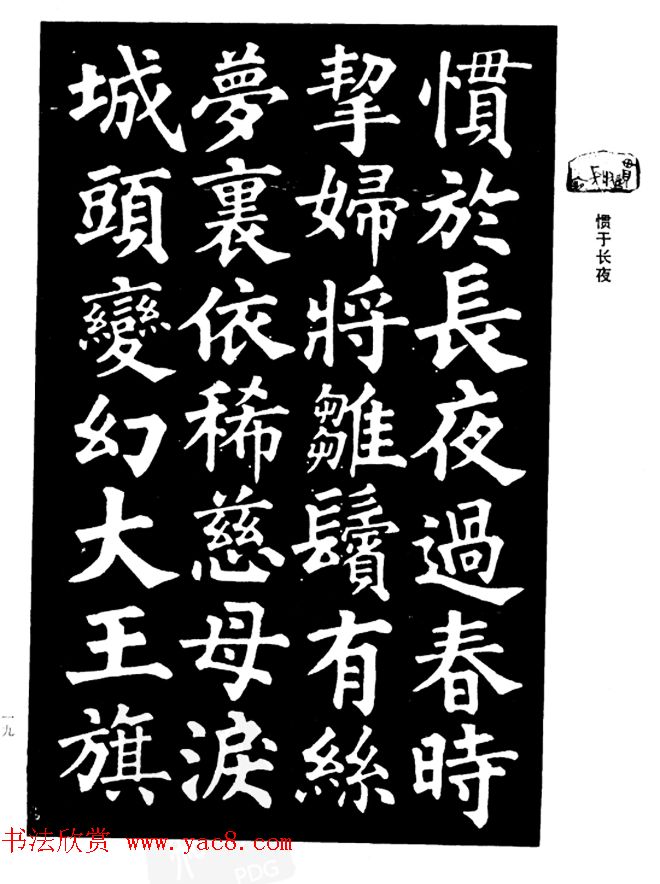 慣於長夜過春時
挈婦將雛鬢有絲
夢裏依稀慈母淚
城頭變幻大王旗
惯于长夜
一九
书法欣赏 www.yac8.com
PDG